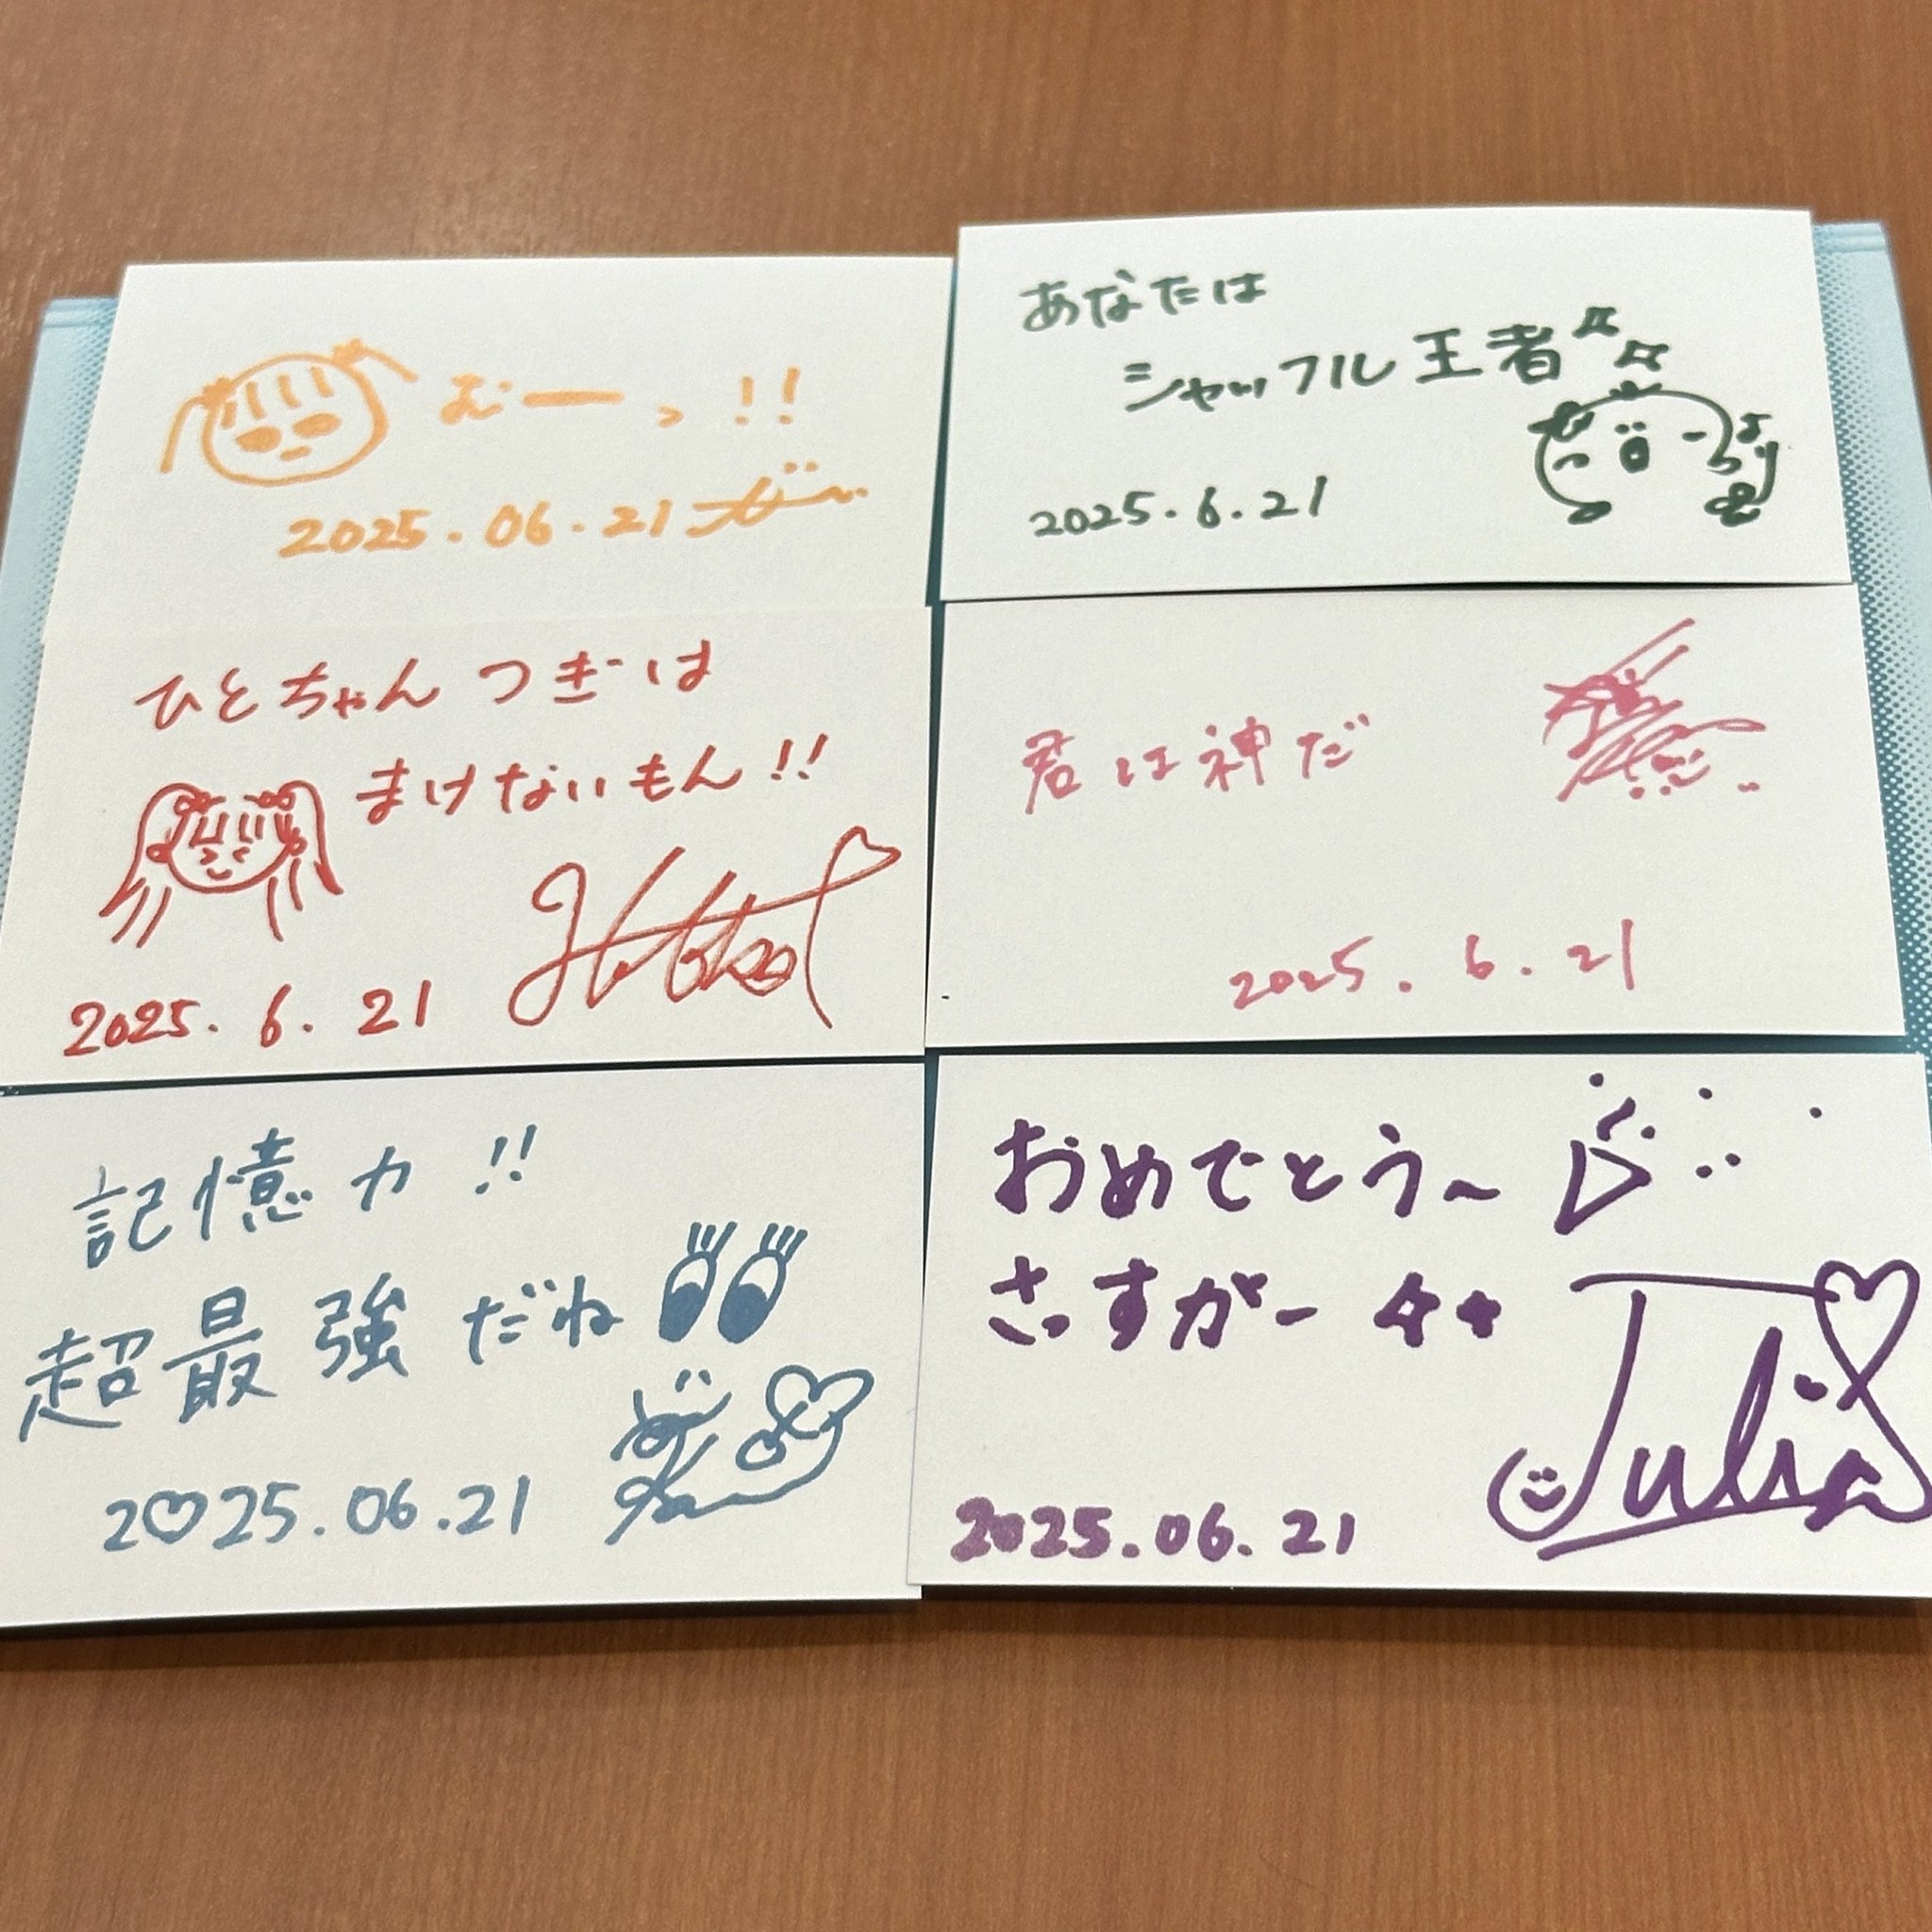 むーっ!!
2025.06.21
あなたは
シャッフル王者
2025.6.21
ひとちゃん つぎは
まけないもん!!
2025.6.21
君は神だ
2025.6.21
記憶力!!
超最強だね
2♡25.06.21
おめでとう~
さっすがー
Julia
2025.06.21